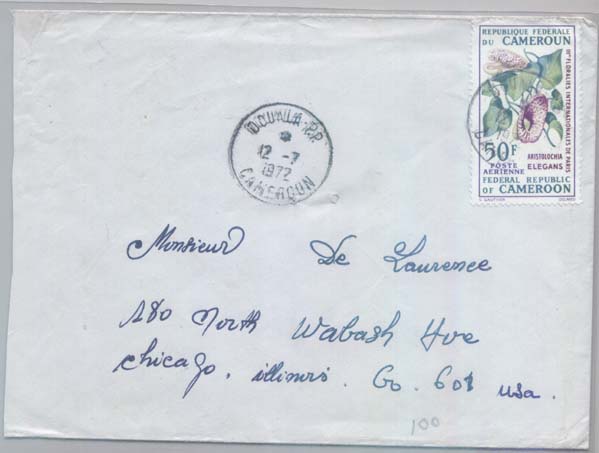 REPUBLIQUE FEDERALE
DU CAMEROUN
IIIes FLORALIES INTERNATIONALES DE PARIS
50F
POSTE AERIENNE
ARISTOLOCHIA ELEGANS
FEDERAL REPUBLIC
OF CAMEROON
GAUTHIER DELRIEU
DOUALA R.P.
*
12 -7
1972
CAMEROUN
Monsieur De Laurence
180 North Wabash Ave
Chicago. illinois. Co. 601 usa.
100